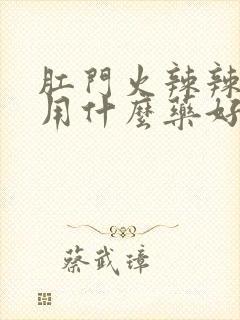 肛門火辣辣
用什麼藥好
蔡武璋